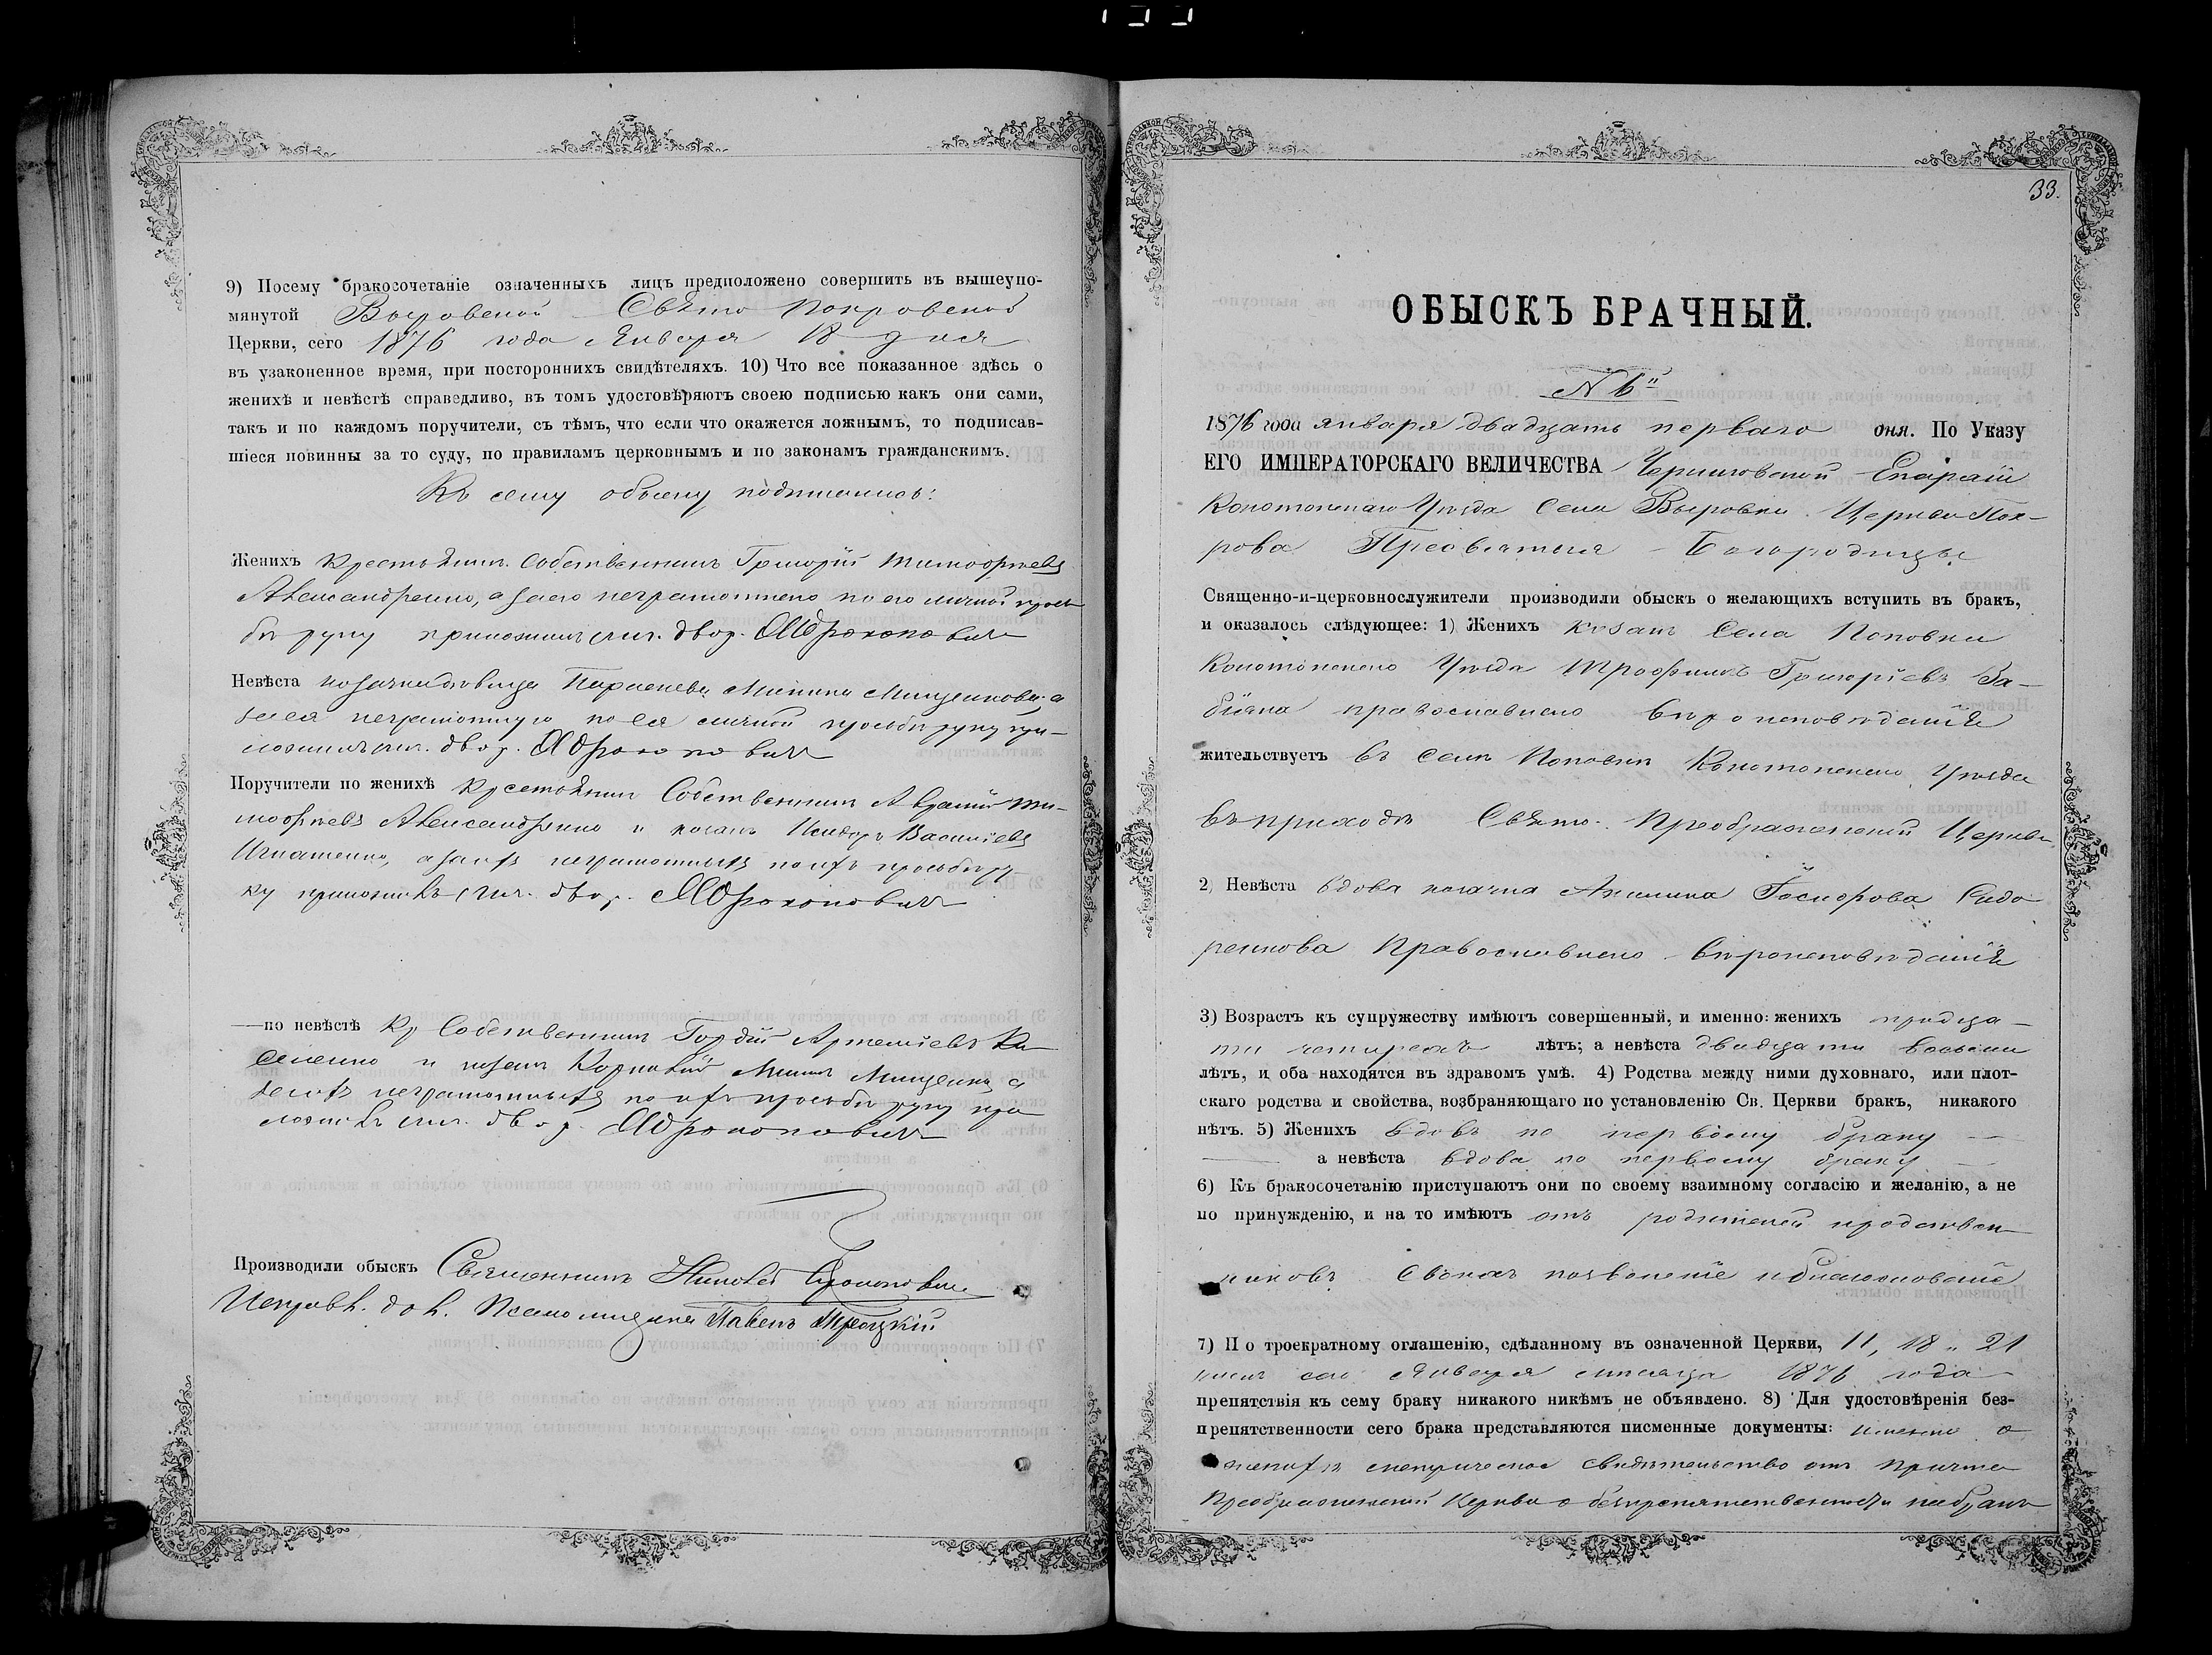 9) Посему бракосочетаніе означенныхъ лицъ предположено совершить въ вышеупо-
мянутой Выровской Свято Покровской
Церкви, сего 1876 года Января 18 дня
въ узаконенное время, при постороннихъ свидѣтеляхъ. 10) Что все показанное здѣсь о
женихѣ и невѣстѣ справедливо, въ томъ удостовѣряютъ своею подписью какъ они сами,
такъ и по каждомъ поручители, съ тѣмъ, что если что окажется ложнымъ, то подписав-
шіеся повинны за то суду, по правиламъ церковнымъ и по законамъ гражданскимъ.
Къ сему обыску подписались:
Женихъ Крестьянинъ Собственникъ Григорій Тимофѣевъ
Александренко, а за его неграмотнаго по его личной прось-
бѣ руку приложилъ двор. Прокоповичъ
Невѣста Минина Мищенкова, а
за ея неграмотную по ея личной просьбѣ руку при-
ложилъ двор. Прокоповичъ
Поручители по женихѣ Крестьянинъ Собственникъ Ти-
мофѣевъ Александренко и козакъ Исидоръ Васильевъ
Игнатенко, а за ихъ неграмотныхъ по ихъ просьбѣ ру-
ку приложилъ двор. Прокоповичъ
—по невѣстѣ Кр Собственникъ Гордій Артемьевъ
и козакъ Корнилій Мининъ Мищенко а
за ихъ неграмотныхъ по ихъ просьбѣ руку при
ложилъ двор. Прокоповичъ
Производили обыскъ Священникъ Николай Прокопович
Исправл. дол. Псаломщика Павелъ Троцкій
33.
ОБЫСКЪ БРАЧНЫЙ.
№ 6й
1876 года января двадцать перваго дня. По Указу
ЕГО ИМПЕРАТОРСКАГО ВЕЛИЧЕСТВА Черниговской Епархіи
Конотопскаго Уѣзда Села Выровки Церкви Пок-
рова Пресвятыя Богородицы
Священно-и-церковнослужители производили обыскъ о желающихъ вступить въ бракъ,
и оказалось слѣдующее: 1) Женихъ козакъ Села Поповки
Конотопскаго Уѣзда Трофимъ Григорьевъ Ба-
православнаго вѣроисповѣданія
жительствуетъ въ селѣ Поповкѣ Конотопскаго Уѣзда
въ приходѣ Свято Преображенской Церкви
2) Невѣста вдова козачка Акилина Сидо
ренкова Православнаго вѣроисповѣданія
3) Возрастъ къ супружеству имѣютъ совершенный, и именно: женихъ тридца-
ти четырехъ лѣтъ; а невѣста двадцати восьми
лѣтъ, и оба находятся въ здравомъ умѣ. 4) Родства между ними духовнаго, или плот-
скаго родства и свойства, возбраняющаго по установленію Св. Церкви бракъ, никакого
нѣтъ. 5) Женихъ вдовъ по первому браку —
— а невѣста вдова по первому браку —
6) Къ бракосочетанію приступаютъ они по своему взаимному согласію и желанію, а не
по принужденію, и на то имѣютъ отъ родителей и родствен
никовъ своихъ позволеніе и благословеніе
7) По троекратному оглашенію, сдѣланному въ означенной Церкви, 11, 18 и 21
чиселъ сего Января мѣсяца 1876 года
препятствія къ сему браку никакого никѣмъ не объявлено. 8) Для удостовѣренія без-
препятственности сего брака представляются писменные документы: именно о
женихѣ свидѣтельство отъ причта
Преображенской Церкви о безпрепятственности на бракъ